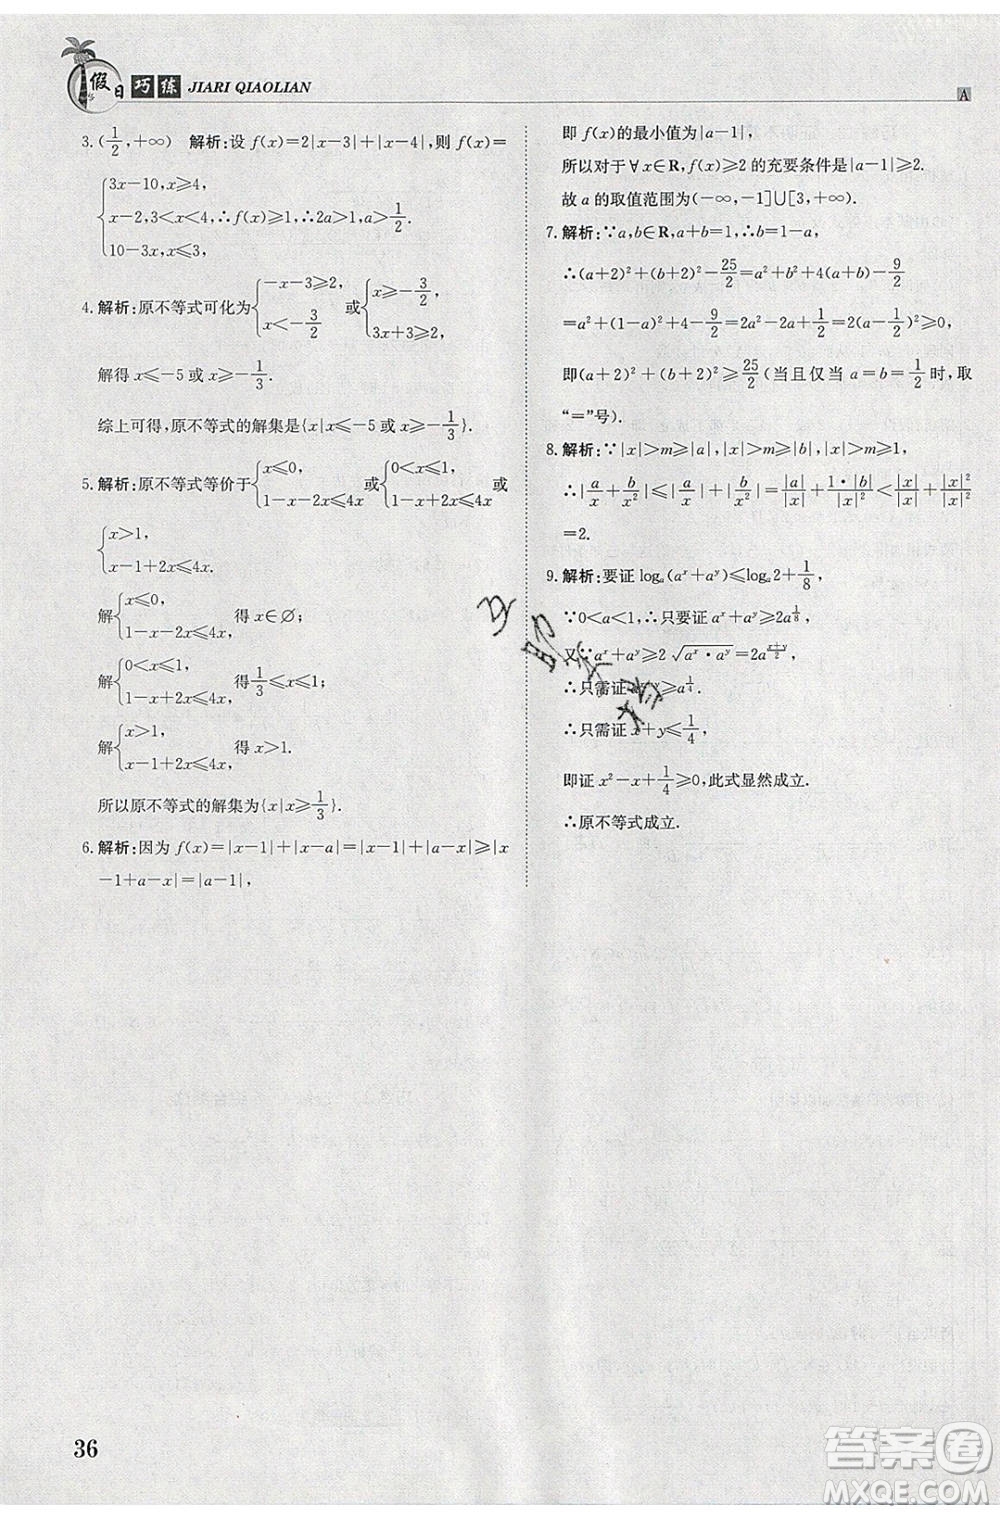 假日巧练 JIARI QIAOLIAN
A
3. (1/2, +∞) 解析:设 f(x)=2|x-3|+|x-4|,则 f(x)=
{3x-10,x≥4,
x-2,3<x<4,∴f(x)≥1,∴2a>1,a>1/2.
10-3x,x≤3,
4. 解析:原不等式可化为{-x-3≥2, x<-3/2 或{x≥-3/2, 3x+3≥2,
解得 x≤-5 或 x≥-1/3.
综上可得,原不等式的解集是{x|x≤-5 或 x≥-1/3}.
5. 解析:原不等式等价于{x≤0, 1-x-2x≤4x 或{0<x≤1, 1-x+2x≤4x 或
{x>1, x-1+2x≤4x.
解{x≤0, 1-x-2x≤4x, 得 x∈∅;
解{0<x≤1, 1-x+2x≤4x, 得1/3≤x≤1;
解{x>1, x-1+2x≤4x, 得 x>1.
所以原不等式的解集为{x|x≥1/3}.
6. 解析:因为 f(x)=|x-1|+|x-a|=|x-1|+|a-x|≥|x
-1+a-x|=|a-1|,
即 f(x)的最小值为|a-1|,
所以对于∀x∈R,f(x)≥2 的充要条件是|a-1|≥2.
故 a 的取值范围为(-∞,-1]∪[3,+∞).
7. 解析:∵a,b∈R,a+b=1,∴b=1-a,
∴(a+2)²+(b+2)²-25/2=a²+b²+4(a+b)-9/2
=a²+(1-a)²+4-9/2=2a²-2a+1/2=2(a-1/2)²≥0,
即(a+2)²+(b+2)²≥25/2(当且仅当 a=b=1/2时,取
“=”号).
8. 解析:∵|x|>m≥|a|,|x|>m≥|b|,|x|>m≥1,
∴|a/x+b/x²|≤|a/x|+|b/x²|=|a|/|x|+1·|b|/|x|²<|x|/|x|+|x|²/|x|²
=2.
9. 解析:要证 logₐ(aˣ+aʸ)≤logₐ2+1/8,
∵0<a<1,∴只要证 aˣ+aʸ≥2a^(1/8),
又∵aˣ+aʸ≥2√(aˣ·aʸ)=2a^((x+y)/2),
∴只需证 a^(x+y)≥a^(1/4).
∴只需证 x+y≤1/4,
即证 x²-x+1/4≥0,此式显然成立.
∴原不等式成立.
36
答案卷
MXQE.COM